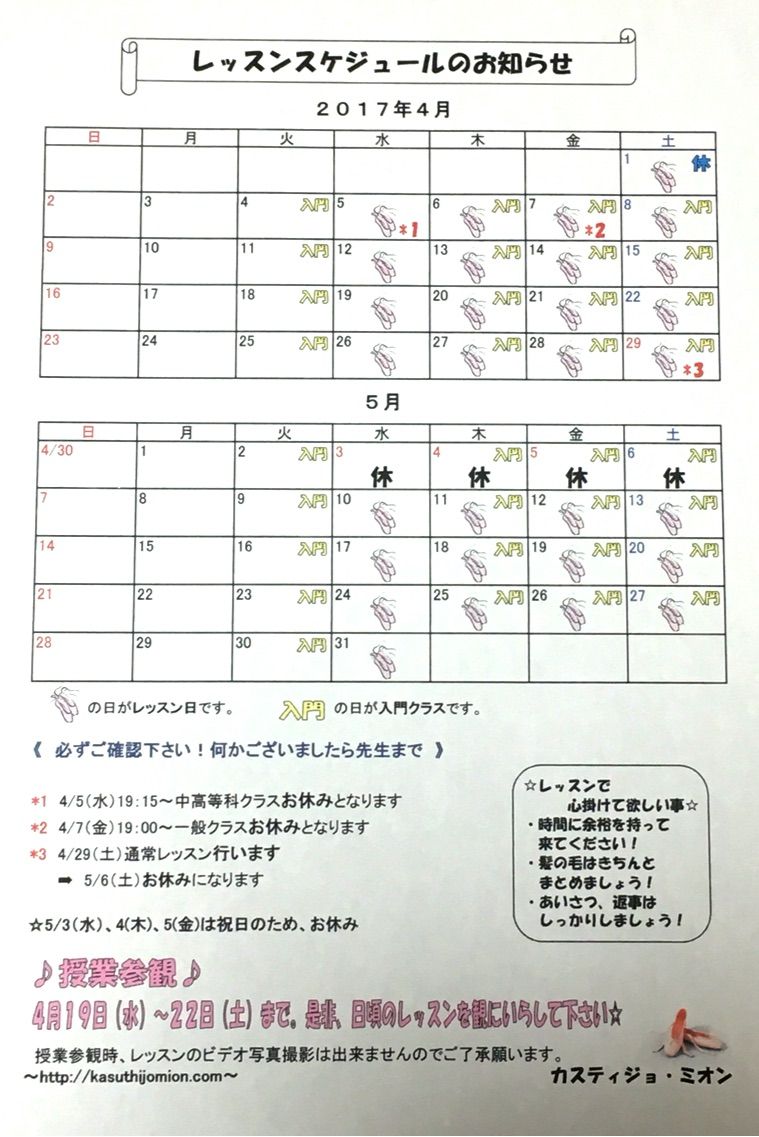 レッスンスケジュールのお知らせ
2017年4月
日 月 火 水 木 金 土
1 休
2 3 4 入門 5 *1 6 入門 7 入門 *2 8 入門
9 10 11 入門 12 13 入門 14 入門 15 入門
16 17 18 入門 19 20 入門 21 入門 22 入門
23 24 25 入門 26 27 入門 28 入門 29 入門 *3
5月
日 月 火 水 木 金 土
4/30 1 2 入門 3 休 4 入門 休 5 入門 休 6 入門 休
7 8 9 入門 10 11 入門 12 入門 13 入門
14 15 16 入門 17 18 入門 19 入門 20 入門
21 22 23 入門 24 25 入門 26 入門 27 入門
28 29 30 入門 31
の日がレッスン日です。 入門 の日が入門クラスです。
《 必ずご確認下さい！何かございましたら先生まで 》
*1 4/5(水)19:15～中高等科クラスお休みとなります
*2 4/7(金)19:00～一般クラスお休みとなります
*3 4/29(土)通常レッスン行います
➡ 5/6(土)お休みになります
☆5/3(水)、4(木)、5(金)は祝日のため、お休み
☆レッスンで
心掛けて欲しい事☆
・時間に余裕を持って
来てください！
・髪の毛はきちんと
まとめましょう！
・あいさつ、返事は
しっかりしましょう！
♪授業参観♪
4月19日(水)～22日(土)まで。是非、日頃のレッスンを観にいらして下さい☆
授業参観時、レッスンのビデオ写真撮影は出来ませんのでご了承願います。
～http://kasuthijomion.com～
カスティジョ・ミオン